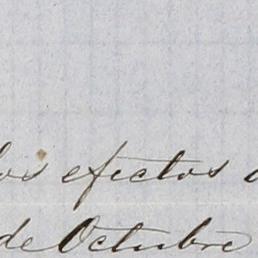 los efectos
de Octubre